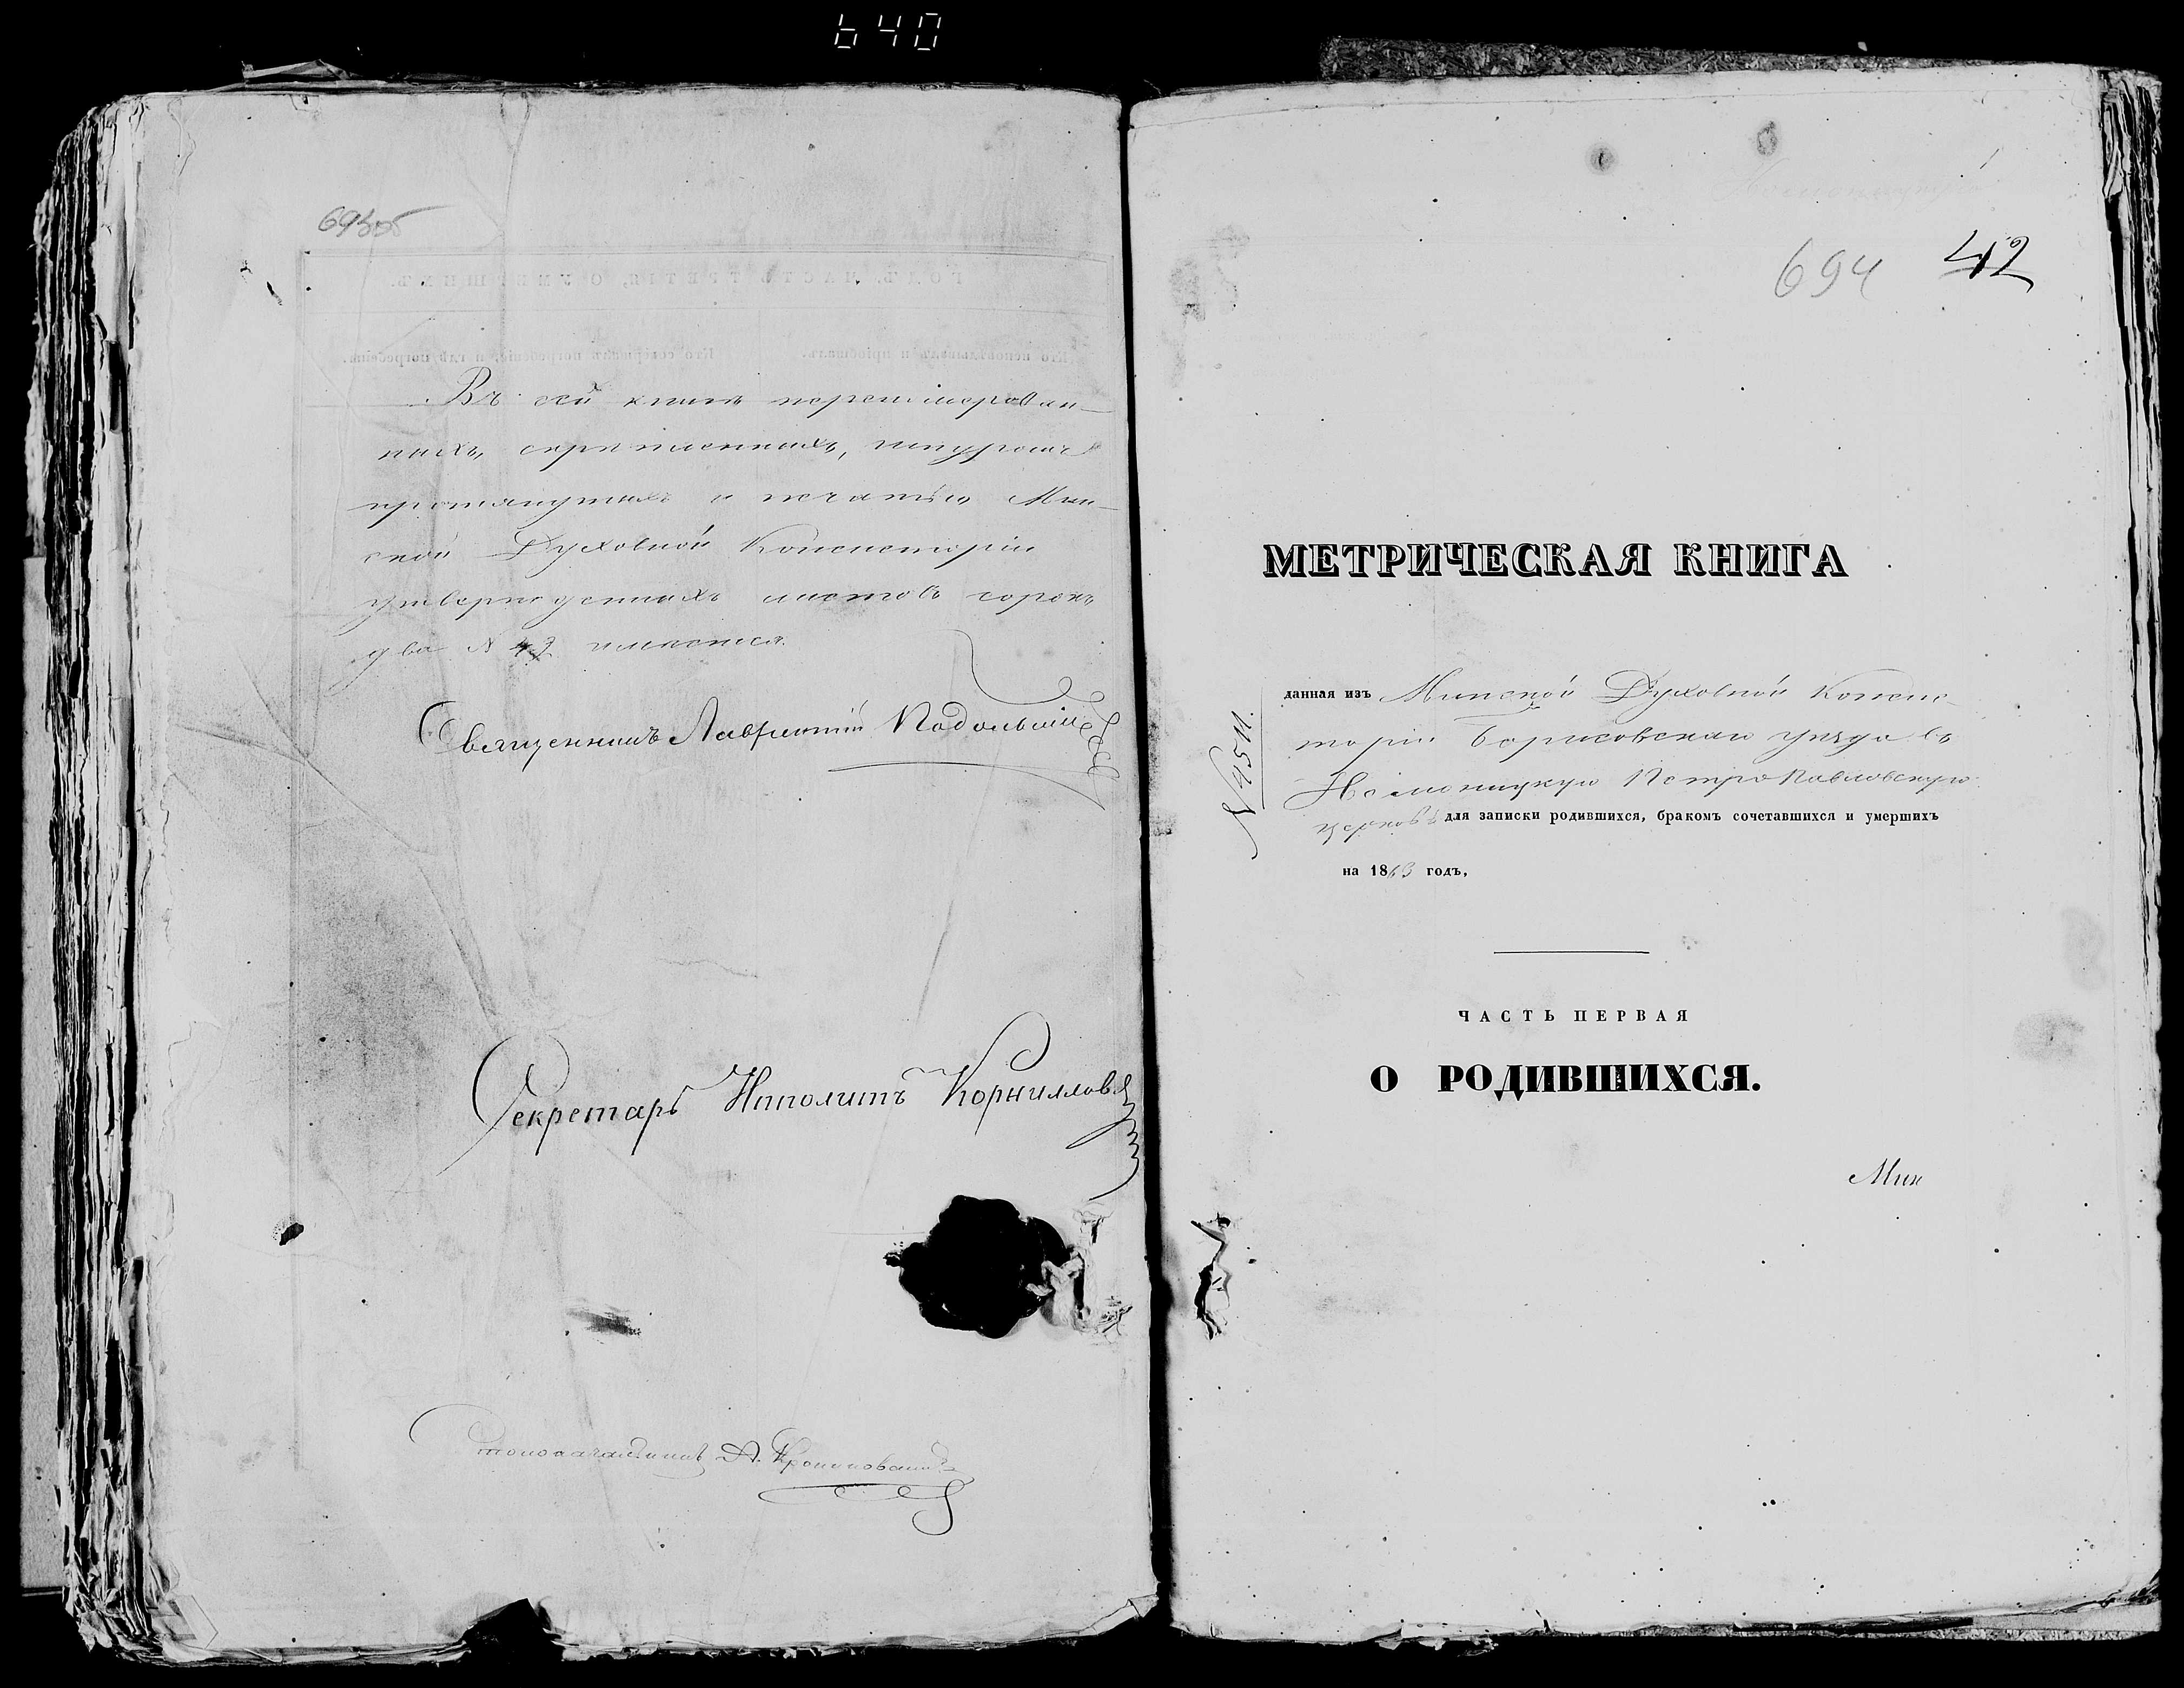 640
Въ сей книгѣ перенумерован-
ныхъ, скрѣпленныхъ, шнуромъ
протянутыхъ и печатью Мин-
ской Духовной Консисторіи
утвержденныхъ листовъ сорокъ
два № 42 имѣется.
Священникъ Лаврентій
Секретарь Ипполитъ Корниловъ
Столоначальникъ А.
694 42
МЕТРИЧЕСКАЯ КНИГА
данная изъ Минской Духовной Консис-
торіи Борисовскаго уѣзда въ
Петропавловскую
церковь для записки родившихся, бракомъ сочетавшихся и умершихъ
на 1863 годъ,
ЧАСТЬ ПЕРВАЯ
О РОДИВШИХСЯ.
Мин